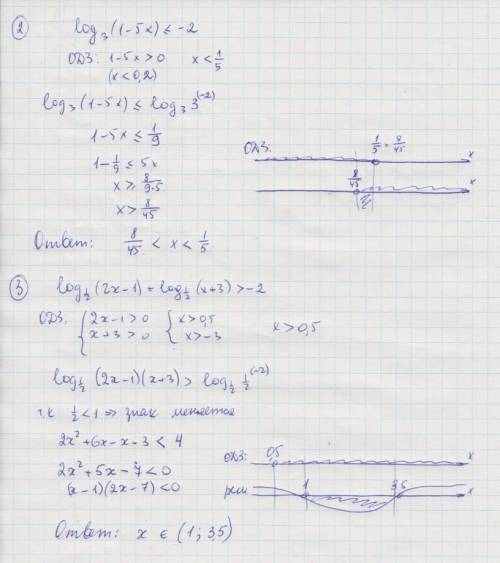 ② log₃(1-5x) ≤ -2
ОДЗ: 1-5x > 0   x < 1/5
(x < 0,2)
log₃(1-5x) ≤ log₃3⁽⁻²⁾
1-5x ≤ 1/9
1-1/9 ≤ 5x
x ≥ 8/(9·5)
x > 8/45
ОДЗ: 1/5 = 9/45 x
8/45 x
Ответ: 8/45 < x < 1/5
③ log_½(2x-1) + log_½(x+3) > -2
ОДЗ. { 2x-1 > 0   { x > 0,5   x > 0,5
x+3 > 0   x > -3
log_½(2x-1)(x+3) > log_½ ½⁽⁻²⁾
т.к ½ < 1 ⇒ знак меняется
2x²+6x-x-3 < 4
2x²+5x-7 < 0
(x-1)(2x-7) < 0
ОДЗ: 0,5 x
реш 1 3,5 x
Ответ: x ∈ (1; 3,5)